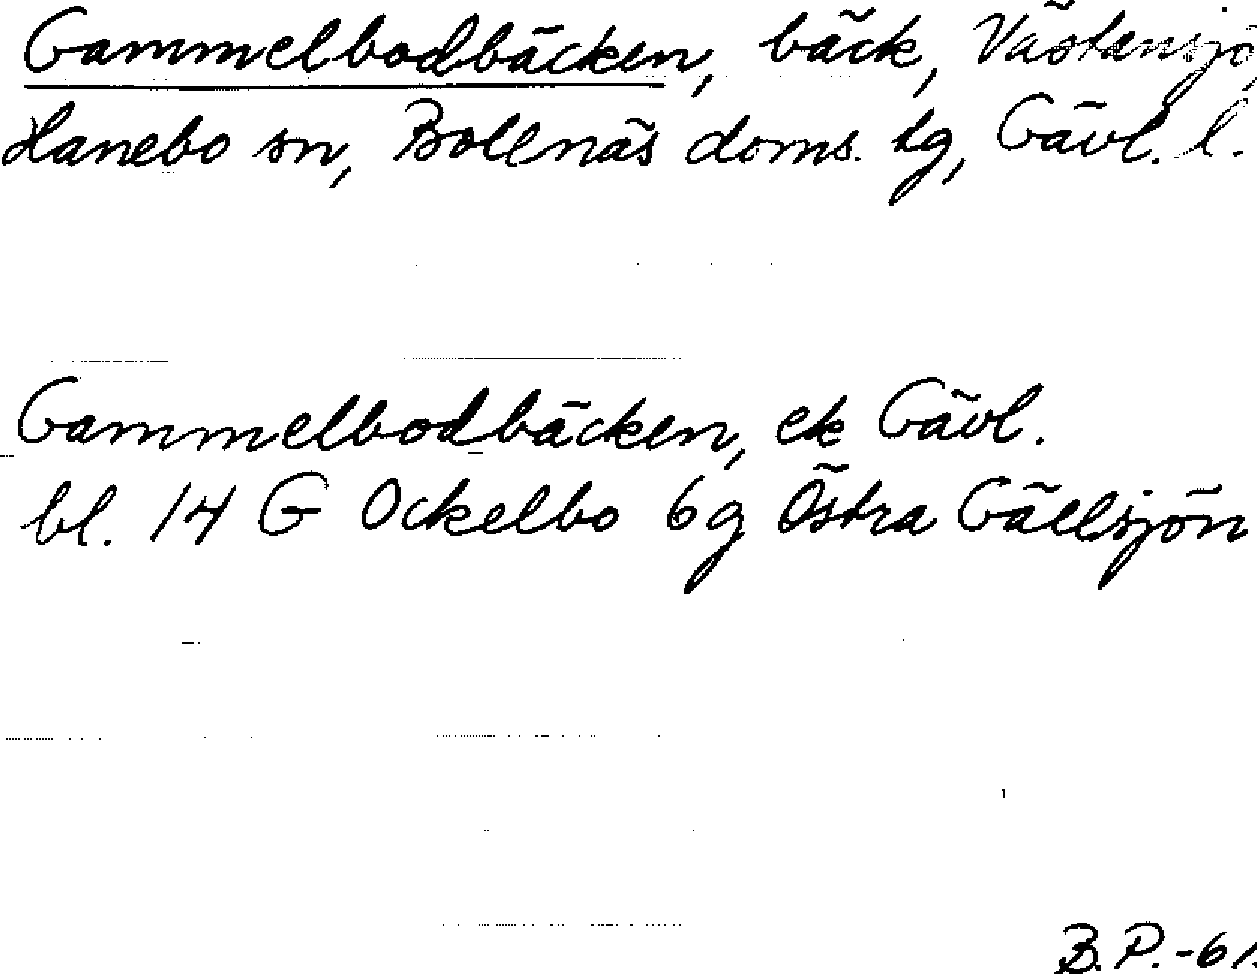 Gammelbodbäcken, bäck, Västansjö,
Hanebo sn, Bollnäs doms. tg, Gävl. l.
Gammelbodbäcken, ek Gävl.
bl. 14 G Ockelbo 6g Östra Gällsjön
B.P.-61